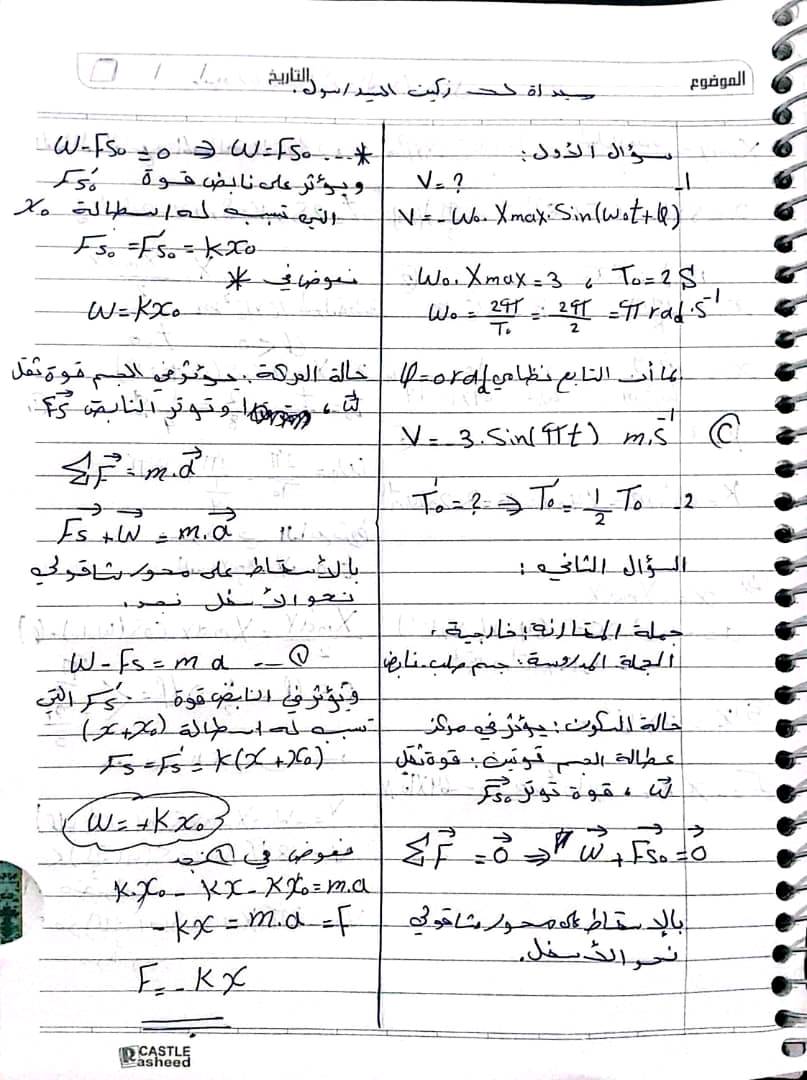 الموضوع
التاريخ / /
سؤال الأول:
1- V=?
V=-W₀.Xmax.Sin(W₀t+φ)
W₀.Xmax=3 ، T₀=2S
W₀ = 2π/T₀ = 2π/2 = π rad.s⁻¹
بما أن التابع نظامي φ=0 rad
V=-3.Sin(πt) m.s⁻¹ (C)
2- T₀'=? ⇒ T₀'=1/2 T₀
السؤال الثاني:
جملة المقارنة: خارجية.
الجملة المدروسة: جسم صلب-نابض
حالة السكون: يؤثر في مركز
عطالة الجسم قوتين: قوة ثقل
W⃗ ، قوة توتر F⃗s₀
ΣF⃗ = 0⃗ ⇒ W⃗ + F⃗s₀ = 0⃗
بالإسقاط على محور شاقولي
نحو الأسفل.
W-Fs₀=0 ⇒ W=Fs₀ ...*
ويؤثر على نابض قوة Fs₀'
التي تسبب له استطالة x₀
Fs₀=Fs₀'=kx₀
نعوض في *
W=kx₀
حالة الحركة: يؤثر في الجسم قوة ثقل
W⃗ ، وتوتر النابض F⃗s
ΣF⃗=m.a⃗
F⃗s+W⃗=m.a⃗
بالأسقاط على محور شاقولي
نحو الأسفل نجد:
W-Fs=m a --- ①
وتؤثر في النابض قوة Fs' التي
تسبب له استطالة (x+x₀)
Fs=Fs'=k(x+x₀)
W=+kx₀
نعوض في ① نجد
k.x₀-kx-kx₀=m.a
-kx=m.a=F
F=-kx
CASTLE
Rasheed